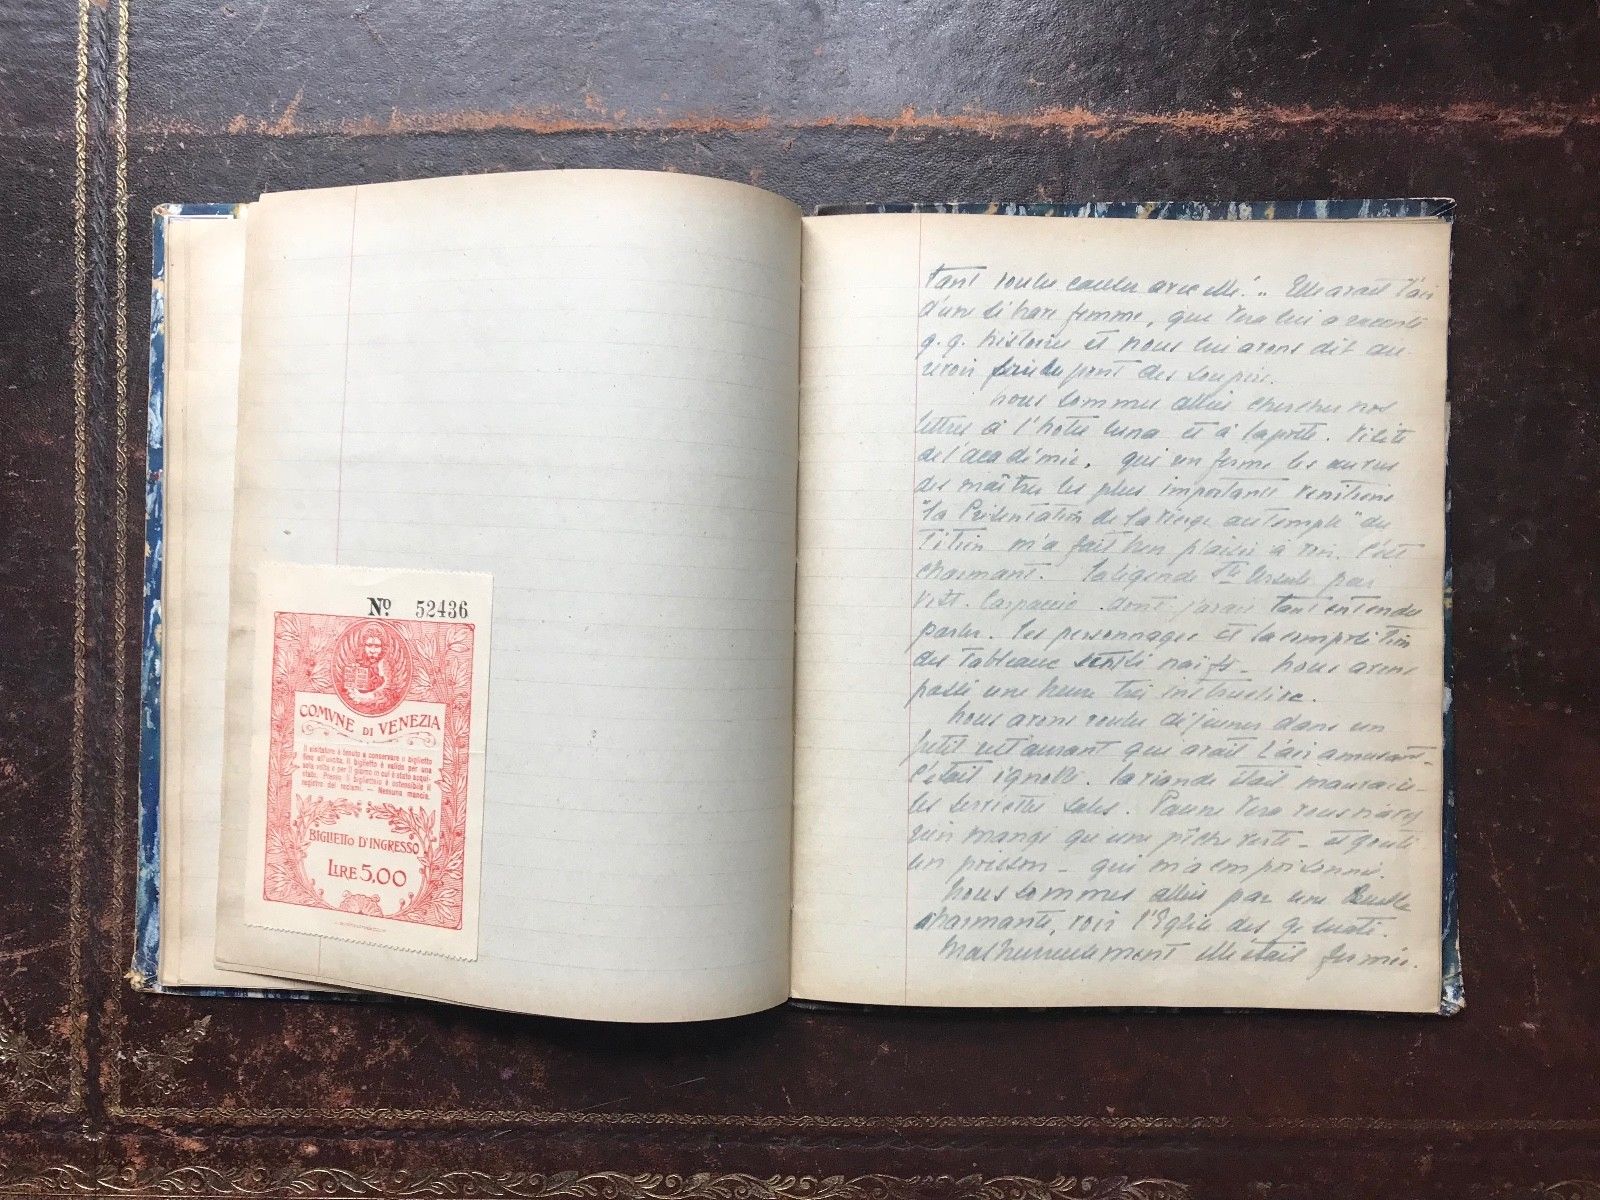 Nº 52436
COMVNE DI VENEZIA
Il visitatore è tenuto a conservare il biglietto
fino all'uscita. Il biglietto è valido per una
sola volta e per il giorno in cui è stato acqui-
stato. Presso il bigliettaio è ostensibile il
registro dei reclami. — Nessuna mancia.
BIGLIETTO D'INGRESSO
LIRE 5,00
tant voulu causer avec elle! .. Elle avait l'air
d'une si brave femme, que Vera lui a raconté
q.q. histoires et nous lui avons dit au
revoir du pont des soupirs.
Nous sommes allées chercher nos
lettres à l'hotel Luna et à la poste. Visite
de l'académie, qui renferme les œuvres
des maîtres les plus importants Vénitiens
"La Présentation de la Vierge au temple" du
Titien m'a fait bien plaisir à voir. C'est
charmant. La légende Ste Ursule par
Vitt. Carpaccio dont j'avais tant entendu
parler. Les personnages et la composition
des tableaux sont si naïfs - Nous avons
passé une heure très instructive.
Nous avons voulu déjeuner dans un
petit restaurant qui avait l'air amusant -
C'était ignoble. La viande était mauvaise -
les serviettes sales. Pauvre Vera
rien mangé qu'une pêche verte - et goûté
un poisson - qui m'a empoisonnée.
Nous sommes allées par une ruelle
charmante, voir l'Eglise des Gesuati.
Malheureusement elle était fermée.